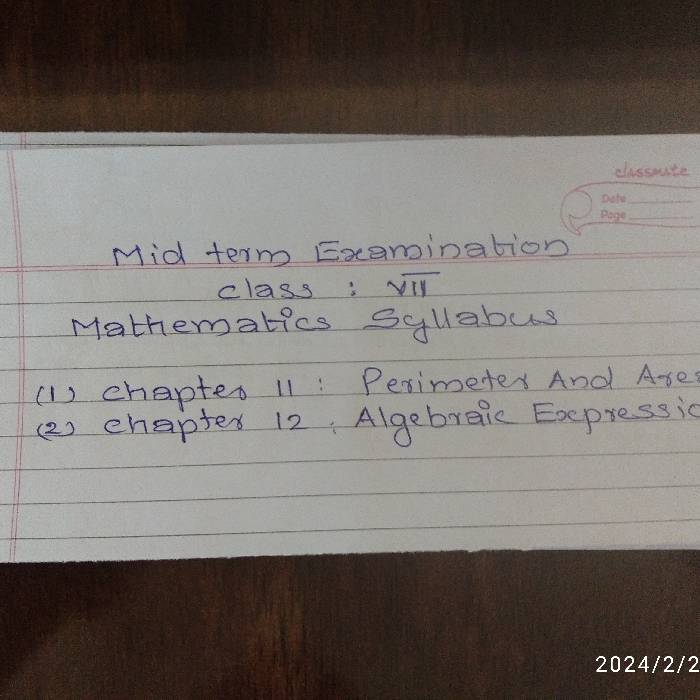 classmate
Date
Page
Mid term Examination
class : VII
Mathematics Syllabus
(1) chapter 11 : Perimeter And
(2) chapter 12 : Algebraic
2024/2/2